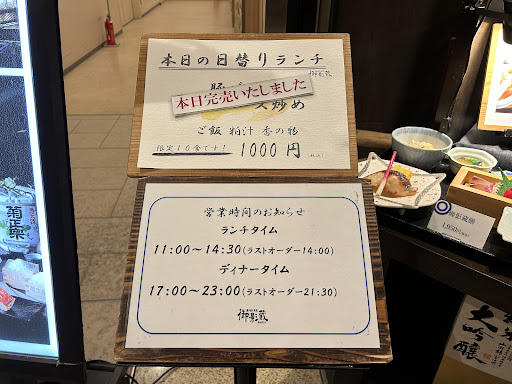 本日の日替りランチ
御影蔵
本日完売いたしました
ス炒め
ご飯 粕汁 香の物
限定10食です! 1000円
(税込)
営業時間のお知らせ
ランチタイム
11:00〜14:30(ラストオーダー14:00)
ディナータイム
17:00〜23:00(ラストオーダー21:30)
御影蔵
菊正宗
御影蔵膳
1,950円
大吟醸